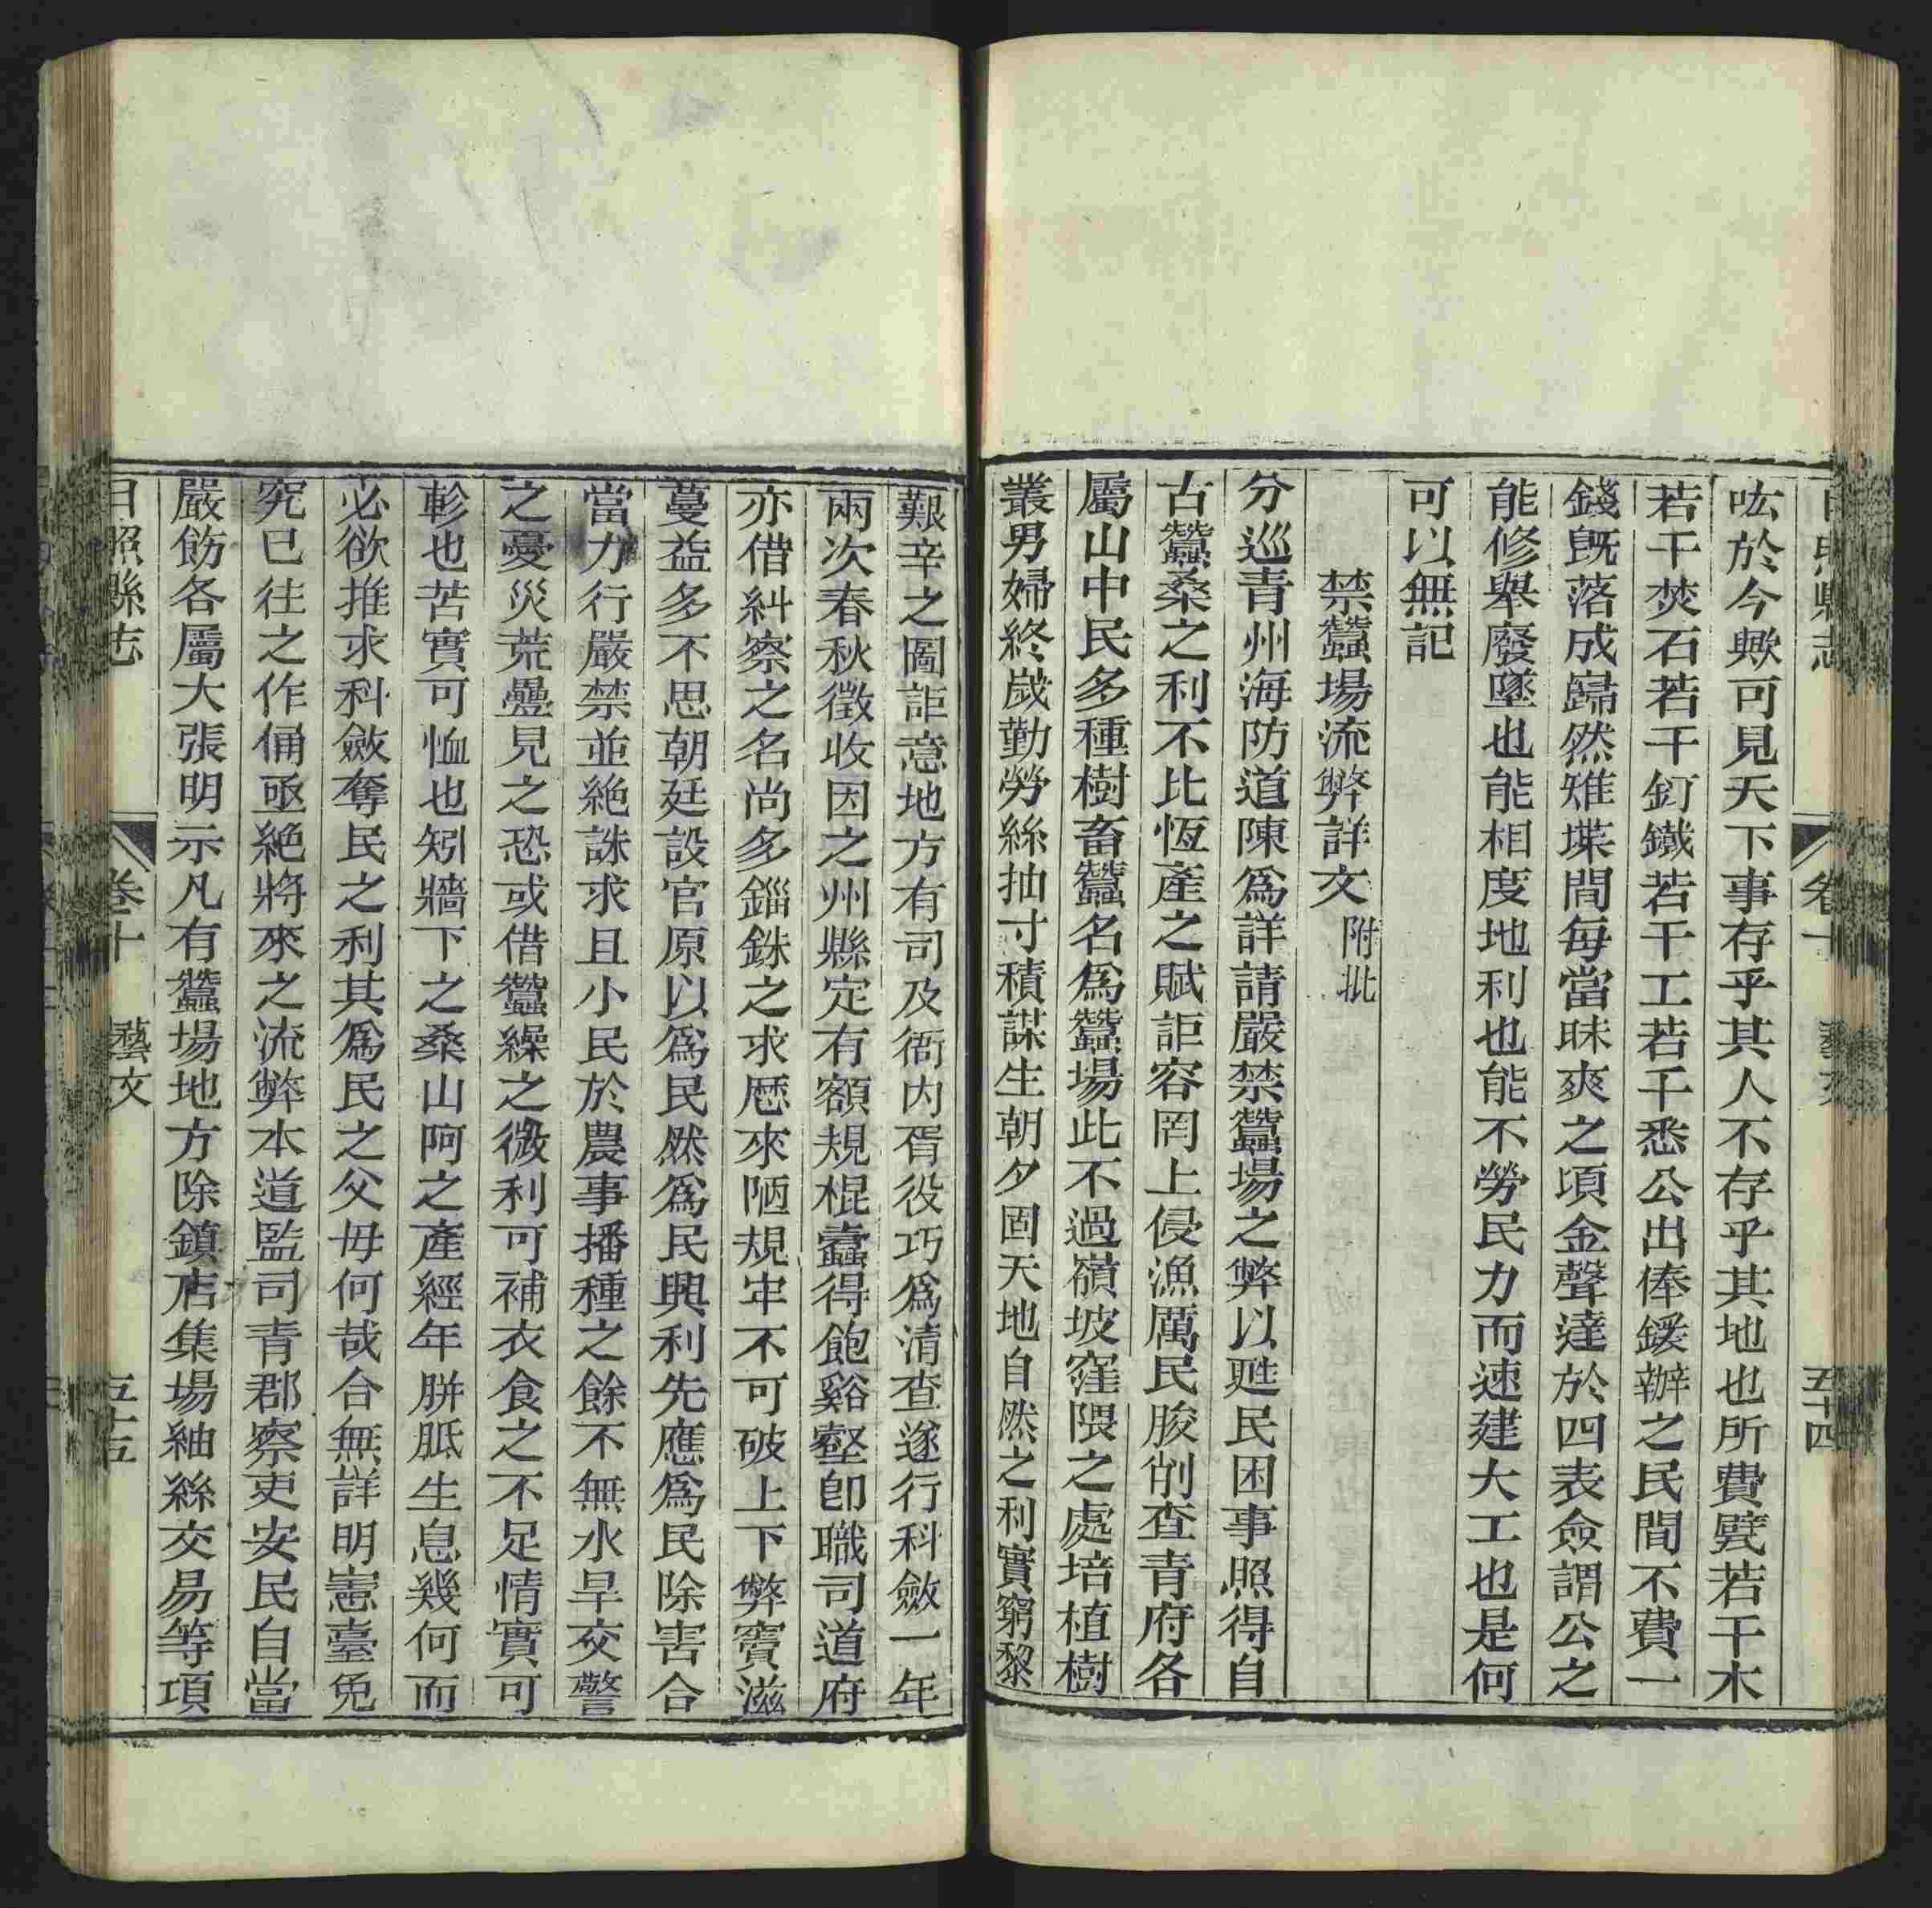 日照縣志　卷十　藝文　五十四
吰於今歟可見天下事存乎其人不存乎其地也所費甓若干木
若干焚石若干釘鐵若干工若干悉公出俸鍰辦之民間不費一
錢既落成巋然雉堞間每當昧爽之項金聲達於四表僉謂公之
能修舉廢墜也能相度地利也能不勞民力而速建大工也是何
可以無記
禁蠶場流弊詳文附批
分巡青州海防道陳爲詳請嚴禁蠶場之弊以甦民困事照得自
古蠶桑之利不比恆產之賦詎容罔上侵漁厲民朘削查青府各
屬山中民多種樹畜蠶名爲蠶場此不過嶺坡窪隈之處培植樹
叢男婦終歲勤勞絲抽寸積謀生朝夕固天地自然之利實窮黎
艱辛之圖詎意地方有司及衙内胥役巧爲清查遂行科斂一年
兩次春秋徵收因之州縣定有額規棍蠹得飽谿壑卽職司道府
亦借糾察之名尚多錙銖之求歷來陋規牢不可破上下弊竇滋
蔓益多不思朝廷設官原以爲民然爲民興利先應爲民除害合
當力行嚴禁並絕誅求且小民於農事播種之餘不無水旱交警
之憂災荒疊見之恐或借蠶繰之微利可補衣食之不足情實可
軫也苦實可恤也矧牆下之桑山阿之產經年胼胝生息幾何而
必欲推求科斂奪民之利其爲民之父母何哉合無詳明憲臺免
究已往之作俑亟絕將來之流弊本道監司青郡察吏安民自當
嚴飭各屬大張明示凡有蠶場地方除鎮店集場紬絲交易等項
日照縣志　卷十　藝文　五十五